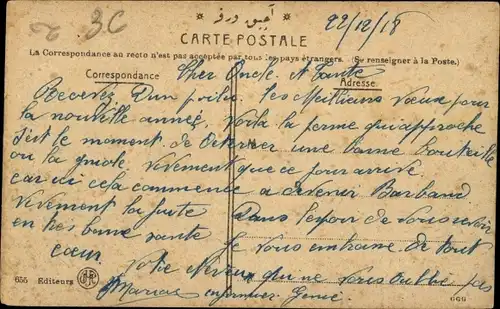 3C
22/12/18
CARTE POSTALE
La Correspondance au recto n'est pas acceptée par tous les pays étrangers. (Se renseigner à la Poste.)
Correspondance
Adresse
Cher Oncle et Tante
Recevez d'un poilu les Meilleurs vœux pour
la nouvelle année. Voilà la perme qui approche
c'est le moment de une bonne bouteille
ou la gnole vivement que ce jour arrive
car ici cela commence a devenir Barband
Vivement la fuite Dans l'espoir de vous revoir
en très bonne sante je vous embrasse de tout
cœur Votre Neveu qui ne vous oublie pas
Marius infirmier Genie
655 Editeurs
666